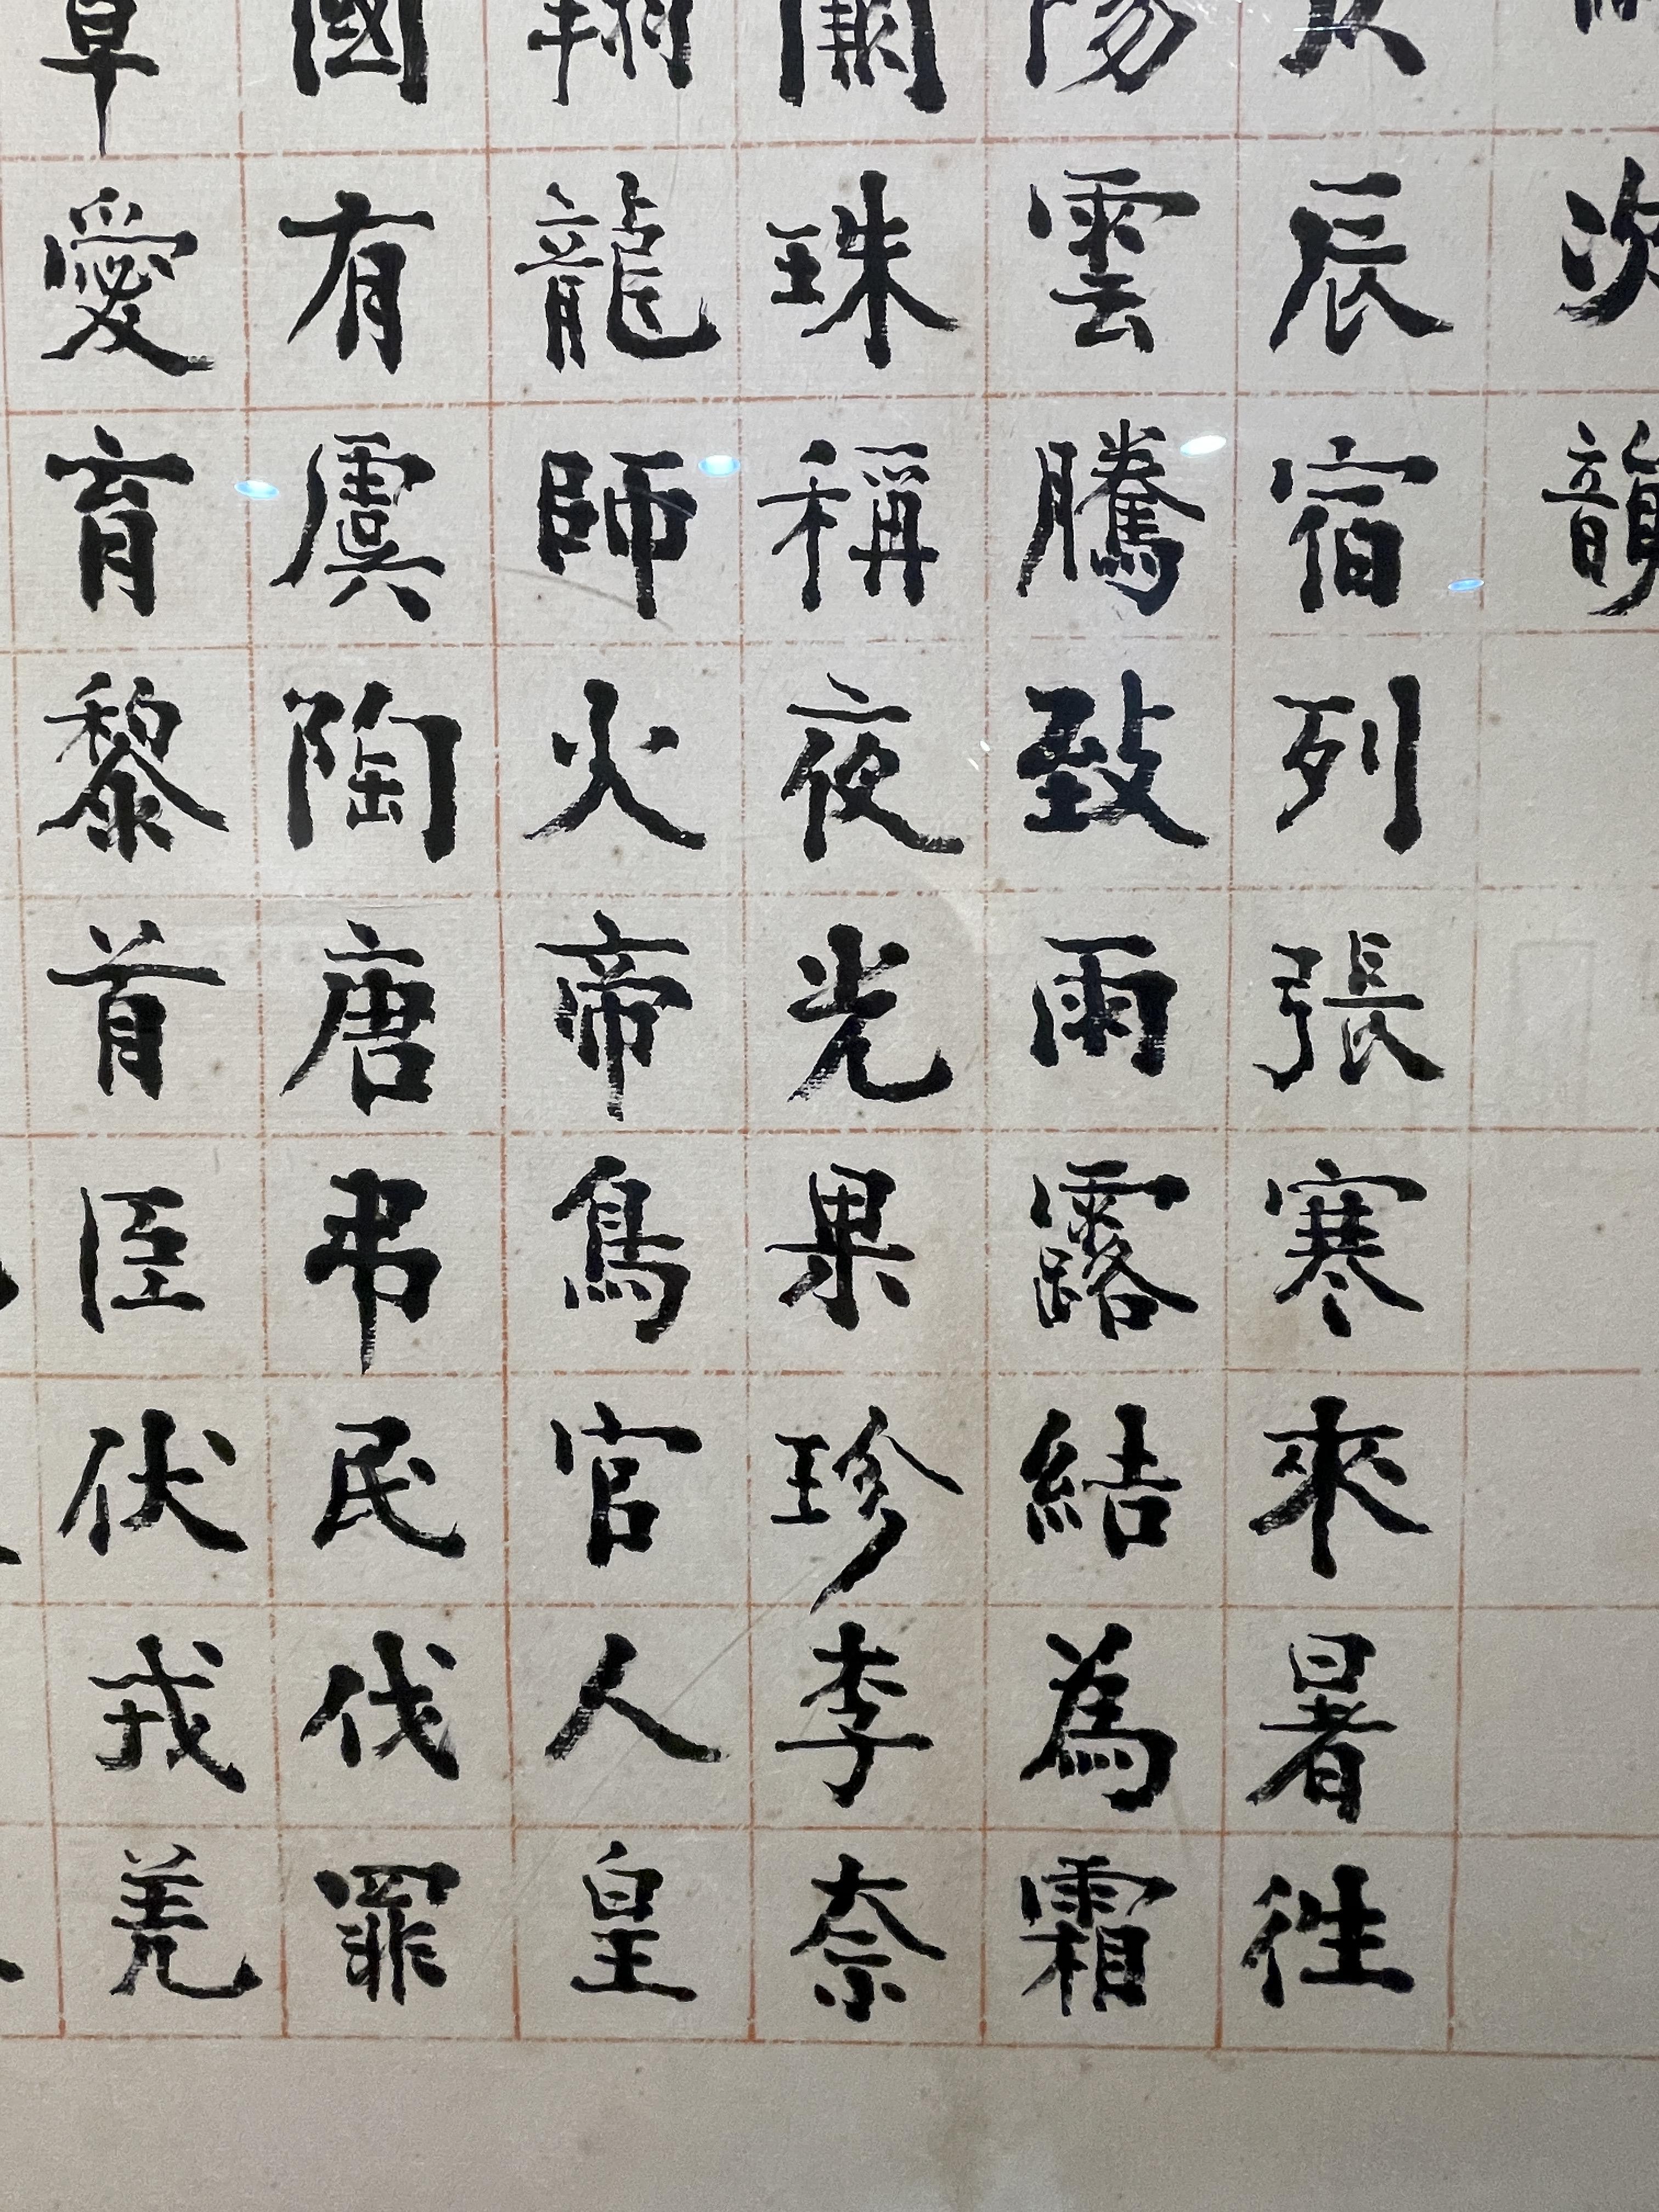 次韻
辰宿列張寒來暑往
陽雲騰致雨露結為霜
闕珠稱夜光果珍李柰
翔龍師火帝鳥官人皇
國有虞陶唐弔民伐罪
章愛育黎首臣伏戎羌